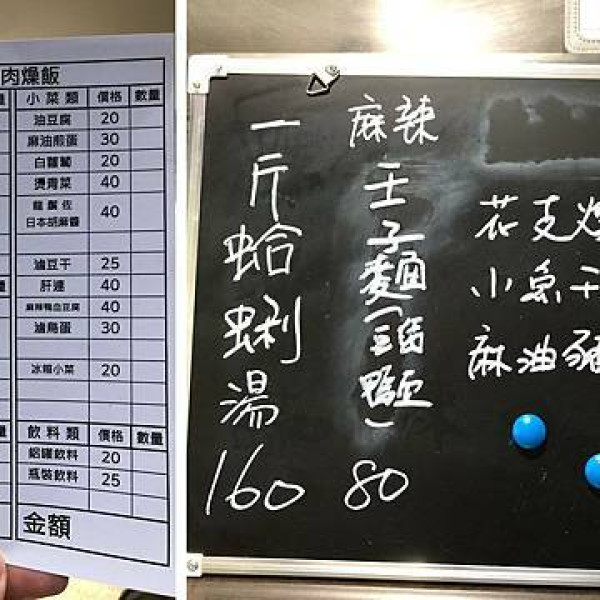 肉燥飯
小菜類 價格 數量
油豆腐 20
麻油煎蛋 30
白蘿蔔 20
燙青菜 40
龍鬚佐
日本胡麻醬 40
滷豆干 25
肝連 40
麻辣鴨血豆腐 40
滷鳥蛋 30
冰糖小菜 20
飲料類 價格 數量
鋁罐飲料 20
瓶裝飲料 25
金額
一斤蛤蜊湯 160
麻辣
王子麵 80
花支
小魚干
麻油豬